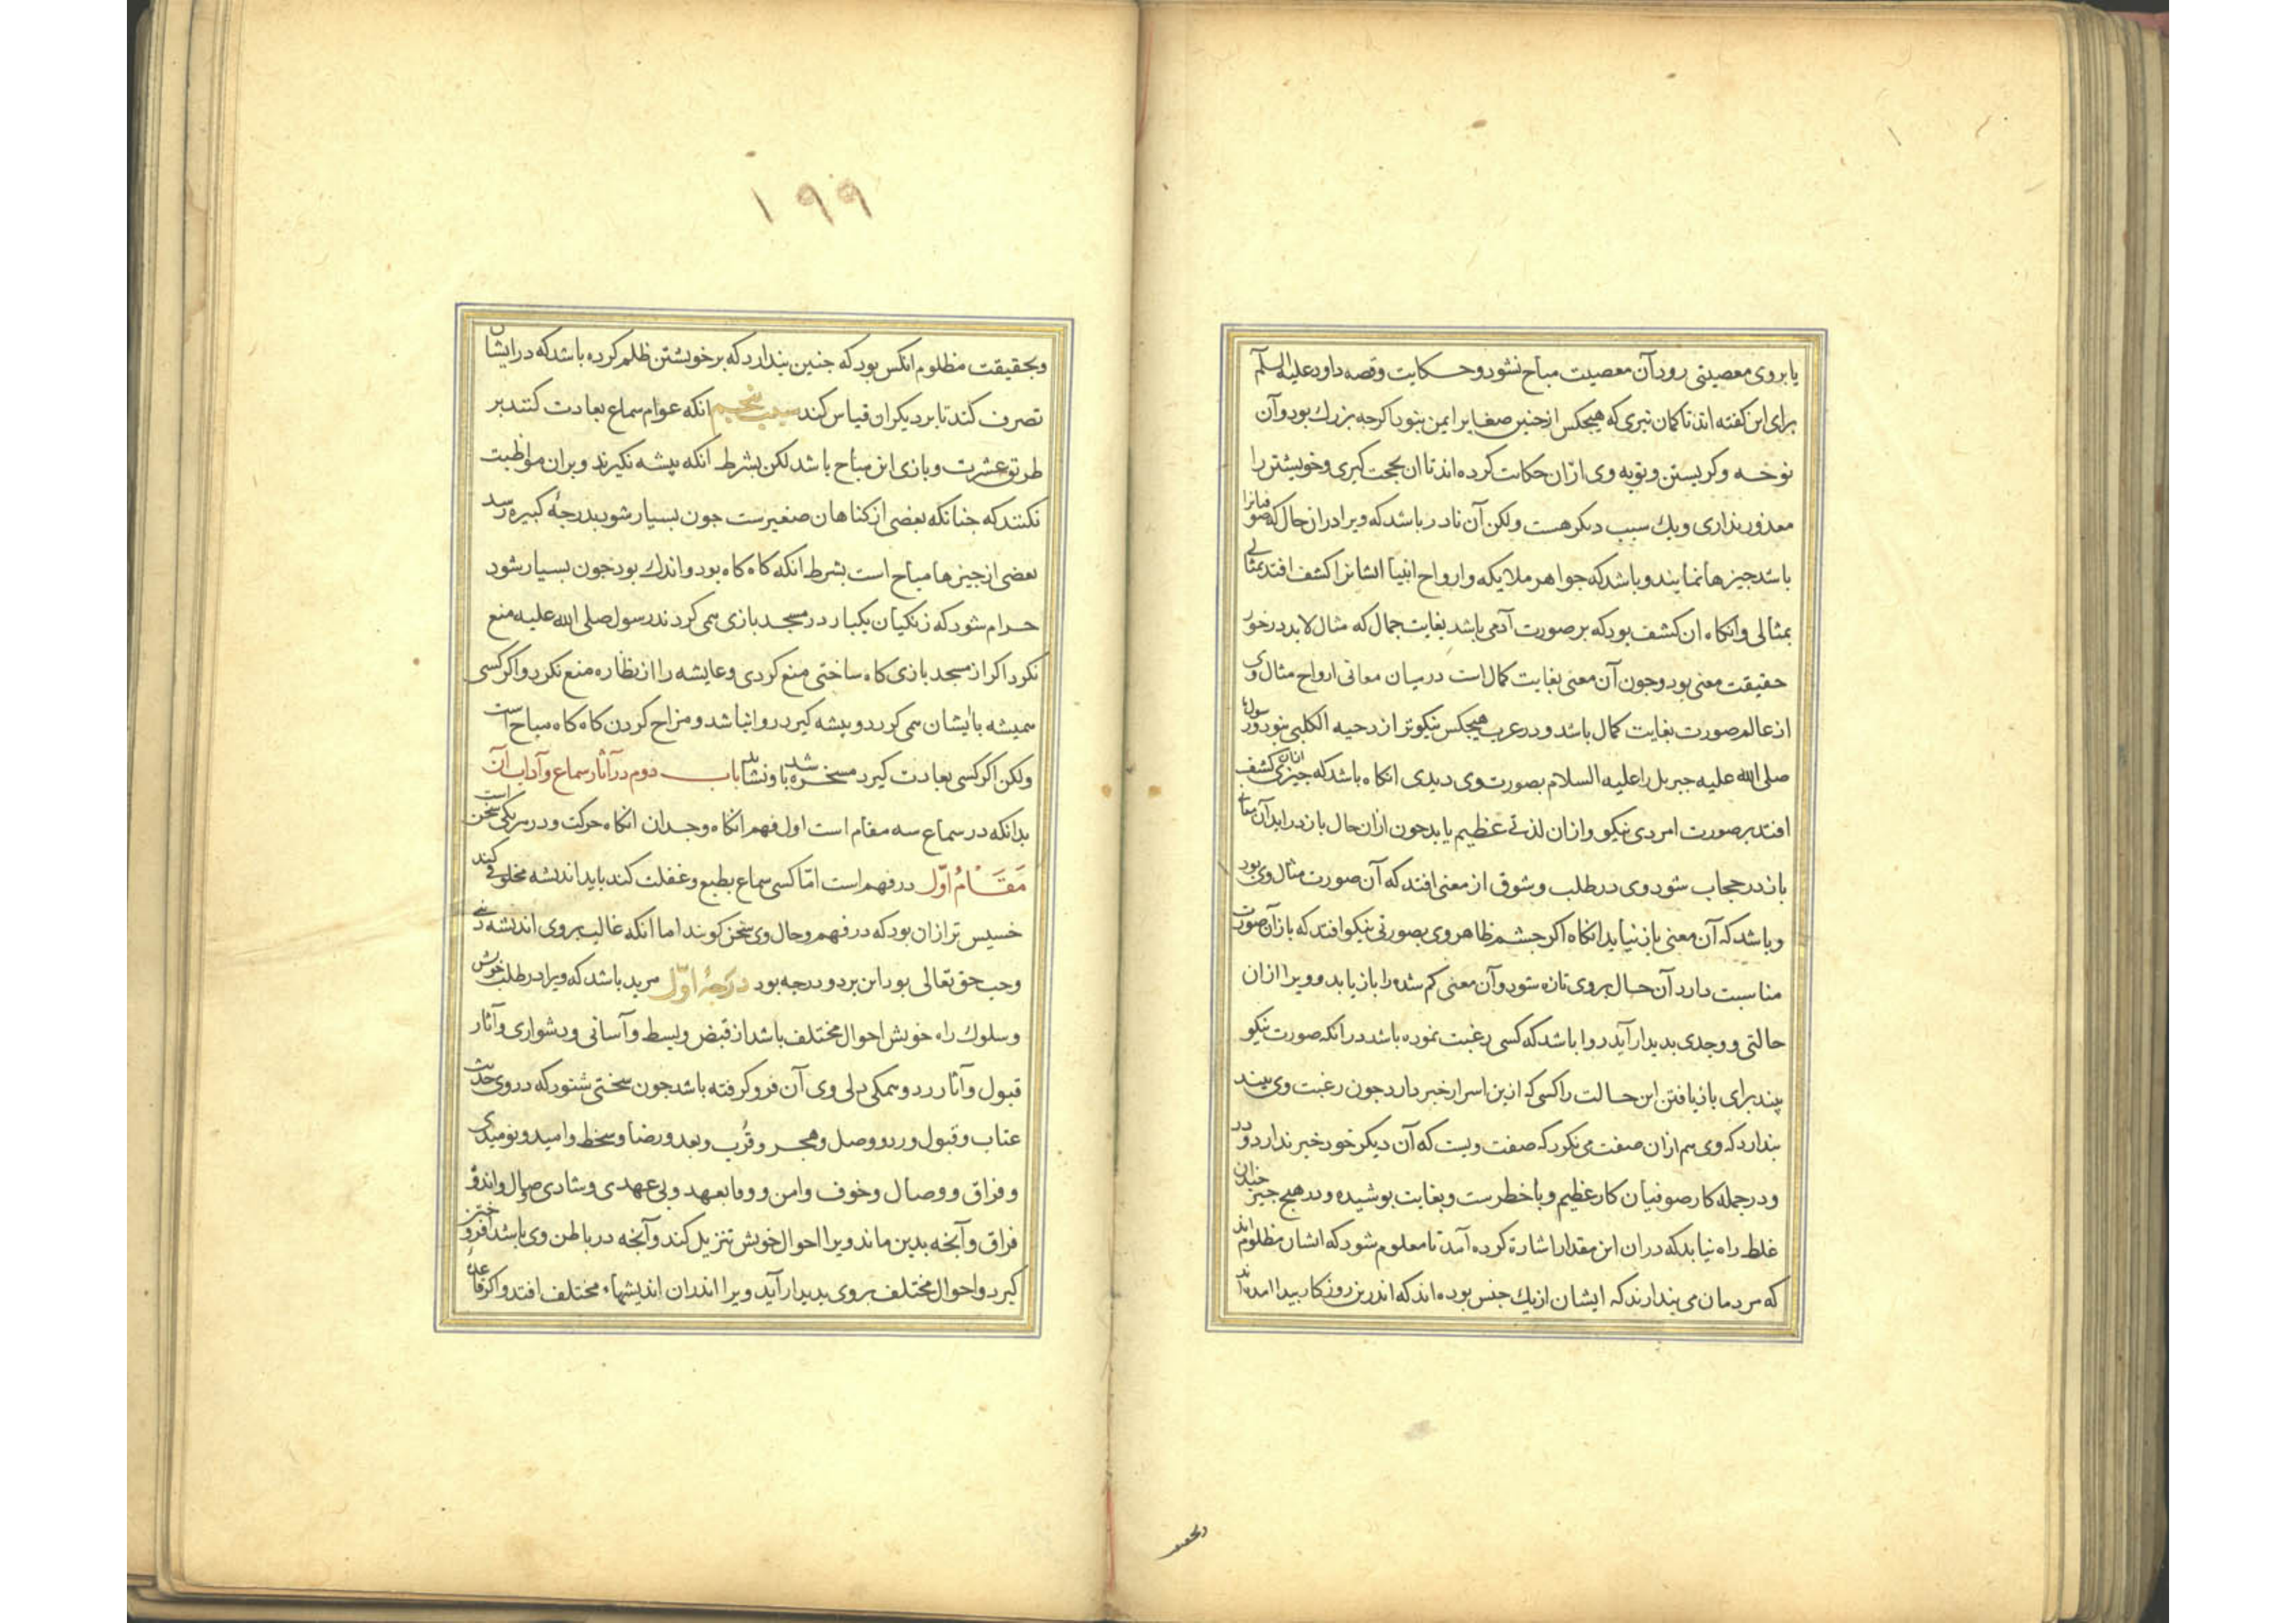 یا بر وی معصیتی رود آن معصیت مباح نشود و حکایت و قصه داود علیه السلم
برای این کفته اند تا کمان نبری که هیچکس از چنین صغایر ایمن بنود اکرچه بزرك بود و آن
نوحه و کریستن و توبه وی ازان حکایت کرده اند تا ان بحجت کیری و خویشتن را
معذور بنداری و یك سبب دیکر هست ولکن آن نادر باشد که ویرا دران حال که صوفیانرا
باشد جیزها نمایند و باشد که جواهر ملایکه و ارواح انبیا ایشانرا کشف افتد بمثالی
بمثالی وانکاه ان کشف بود که بر صورت آدمی باشد بغایت جمال که مثال لابد در خور
حقیقت معنی بود و جون آن معنی بغایت کمال است در میان معانی ارواح مثال وی
از عالم صورت بغایت کمال باشد و در عرب هیجکس نیکوتر از دحیه الکلبی بنود و رسول
صلی الله علیه جبریل را علیه السلام بصورت وی دیدی انکاه باشد که جیزی ازان کشف
افتد بر صورت امردی نیکو و ازان لذتی عظیم یابد جون ازان حال باز دراید آن معانی
باز در حجاب شود وی در طلب و شوق از معنی افتد که آن صورت مثال وی بود
و باشد که آن معنی باز نیاید انکاه اکر جشم ظاهر وی بصورتی نیکو افتد که باز آن صورت
مناسبت دارد آن حال بر وی تازه شود و آن معنی کم شده را باز یابد و ویرا ازان
حالتی و وجدی بدیدار آید روا باشد که کسی رغبت نموده باشد در انکه صورت نیکو
بیند برای بازیافتن این حالت را کسی که ازین اسرار خبر دارد جون رغبت وی بیند
بندارد که وی هم ازان صفت می نکرد که صفت ویست که آن دیکر خود خبر ندارد و در
و در جمله کار صوفیان کار عظیم و با خطرست و بغایت بوشیده و در هیج جیز چندان
غلط راه نیابد که دران این مقدار اشارة کرده آمد تا معلوم شود که ایشان مظلوم اند
که مردمان می بندارند که ایشان ازیك جنس بوده اند که اندرین روزکار بیدا امده اند
وبحقیقت
۱۹۹
وبحقیقت مظلوم انکس بود که جنین بندارد که بر خویشتن ظلم کرده باشد که در ایشان
تصرف کند تا بر دیکران قیاس کند سبب پنجم انکه عوام سماع بعادت کنند بر
طریق عشرت و بازی این مباح باشد لکن بشرط انکه بیشه نکیرند و بران مواظبت
نکنند که جنانکه بعضی از کناهان صغیرست جون بسیار شود بدرجهٔ کبیره رسد
بعضی از جیزها مباح است بشرط انکه کاه کاه بود و اندك بود جون بسیار شود
حرام شود که زنکیان یکبار در مسجد بازی همی کردند رسول صلی الله علیه منع
نکرد اکر از مسجد بازی کاه ساختی منع کردی و عایشه را از نظاره منع نکرد و اکر کسی
همیشه با ایشان همی کردد و بیشه کیرد روا نباشد و مزاح کردن کاه کاه مباح است
ولکن اکر کسی بعادت کیرد مسخره باشد و نشاید باب دوم در آثار سماع و آداب آن
بدانکه در سماع سه مقام است اول فهم انکاه وجد ان انکاه حرکت و در هر یکی سخن است
مقام اول در فهم است اما کسی سماع بطبع و غفلت کند باید اندیشه مخلوقی کند
خسیس تر ازان بود که در فهم و حال وی سخن کویند اما انکه غالب بر وی اندیشه دین
و حب حق تعالی بود این بر دو درجه بود درجهٔ اول مرید باشد که ویرا در طلب خویش
و سلوك راه خویش احوال مختلف باشد از قبض و بسط و آسانی و دشواری و آثار
قبول و آثار رد و همکی دلی وی آن فرو کرفته باشد جون سخنی شنود که در وی حدیث
عتاب و قبول و رد و وصل و هجر و قرب و بعد و رضا و سخط و امید و نومیدی
و فراق و وصال و خوف و امن و وفا بعهد و بی عهدی و شادی وصال و اندوه
فراق و آنچه بدین ماند ویرا احوال خویش تنزیل کند و آنچه در باطن وی باشد افروختن
کیرد و احوال مختلف بر وی بدیدار آید ویرا اندران اندیشهاء مختلف افتد و اکر قاعده